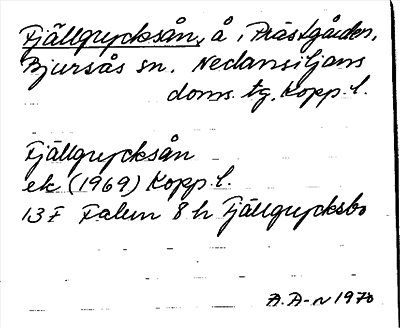 Fjällgrycksån, å i Prästgården,
Bjursås sn. Nedansiljans
doms. tg. Kopp. l.
Fjällgrycksån
ek (1969) Kopp. l.
13F Falun 8 h Fjällgrycksbo
A. A-n 1970